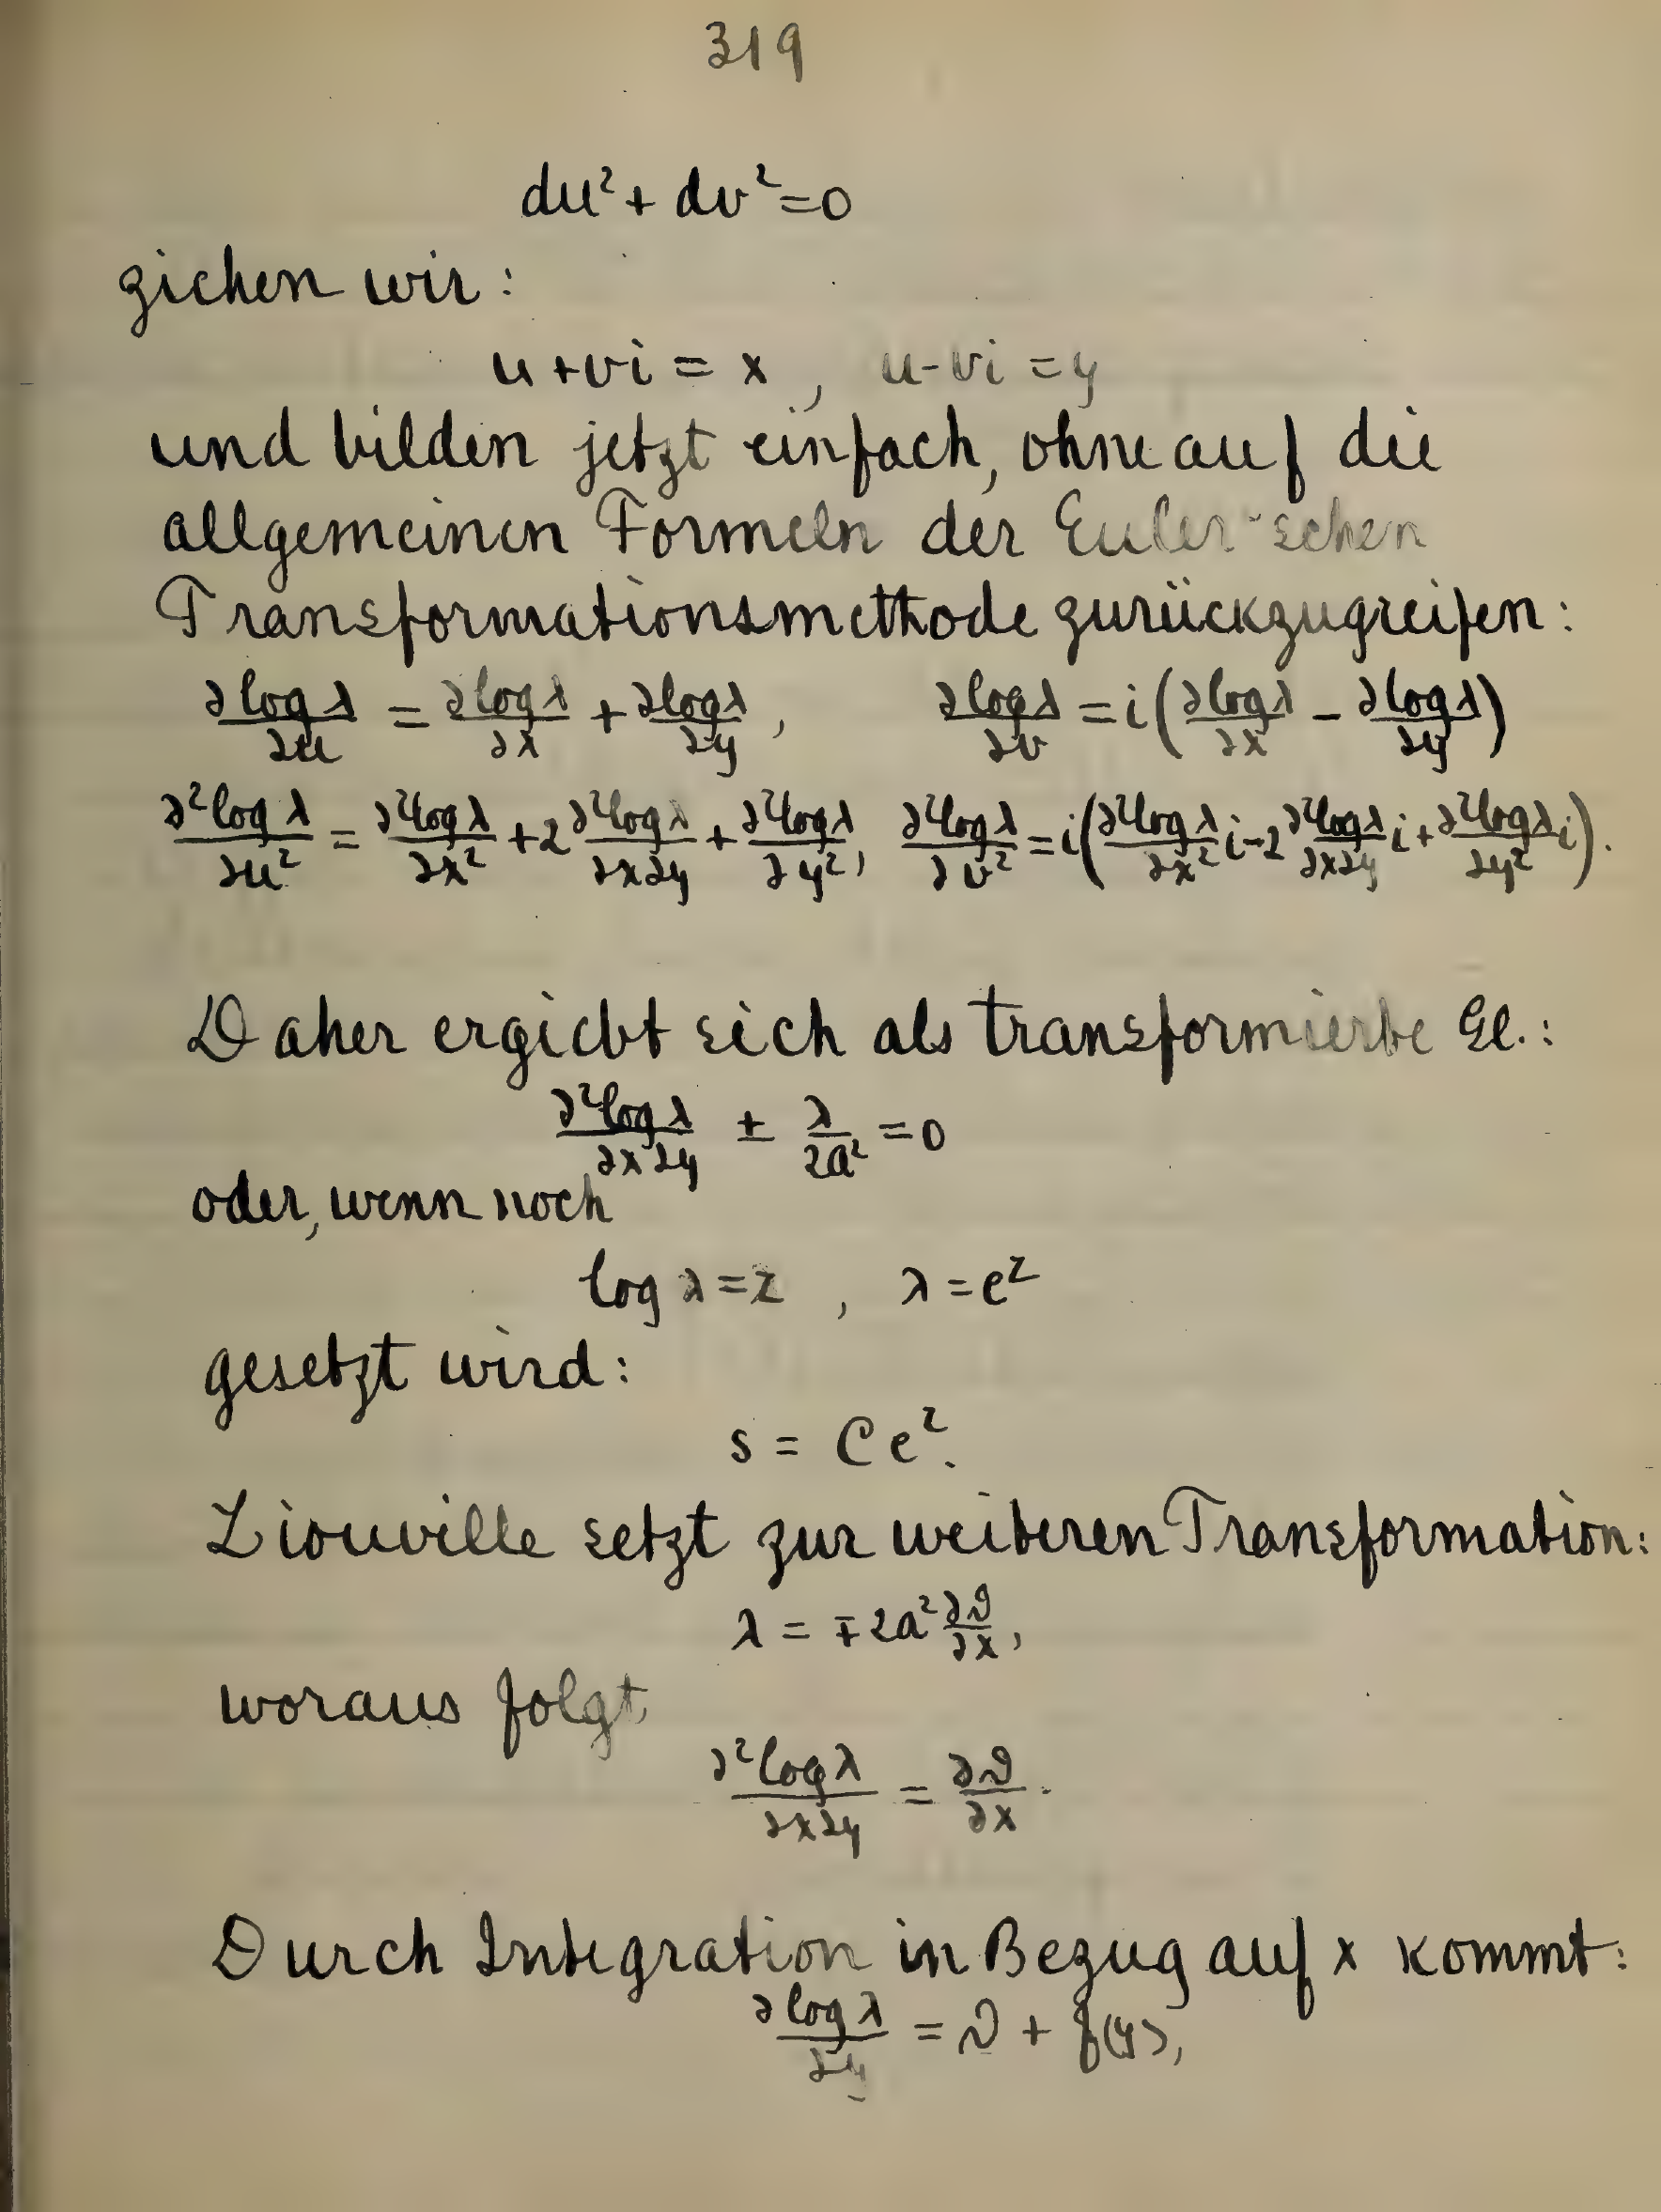 319
du² + dv² = 0
ziehen wir:
u + vi = x , u - vi = y
und bilden jetzt einfach, ohne auf die
allgemeinen Formeln der Euler'schen
Transformationsmethode zurückzugreifen:
∂logλ/∂u = ∂logλ/∂x + ∂logλ/∂y , ∂logλ/∂v = i(∂logλ/∂x - ∂logλ/∂y)
∂²logλ/∂u² = ∂²logλ/∂x² + 2 ∂²logλ/∂x∂y + ∂²logλ/∂y², ∂²logλ/∂v² = i(∂²logλ/∂x² i - 2 ∂²logλ/∂x∂y i + ∂²logλ/∂y² i).
Daher ergiebt sich als transformierte Gl.:
∂²logλ/∂x∂y ± λ/2a² = 0
oder, wenn noch
log λ = z , λ = e^z
gesetzt wird:
s = C e^z.
Liouville setzt zur weiteren Transformation:
λ = ∓ 2a² ∂ϑ/∂x,
woraus folgt
∂²logλ/∂x∂y = ∂ϑ/∂x.
Durch Integration in Bezug auf x kommt:
∂logλ/∂y = ϑ + f(y),